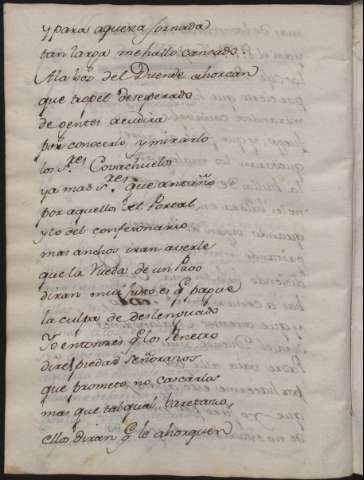 y para aquessa jornada
tan larga me hallo cansado.
A la voz del Duende ahorcan
que tropel desesperado
de gentes acudira
por conocerlo y mirarlo
los S.res Covachuelos
ya mas S.res que antaño
por aquello del Portal
y lo del confesionario
mas anchos iran a verle
que la Rueda de un
diran muy justo es q pague
la culpa de deslenguado
Yo entonces q los penetro
dire piedad señorazos
que prometo no cascarlos
mas que tal qual
ellos diran q lo ahorquen